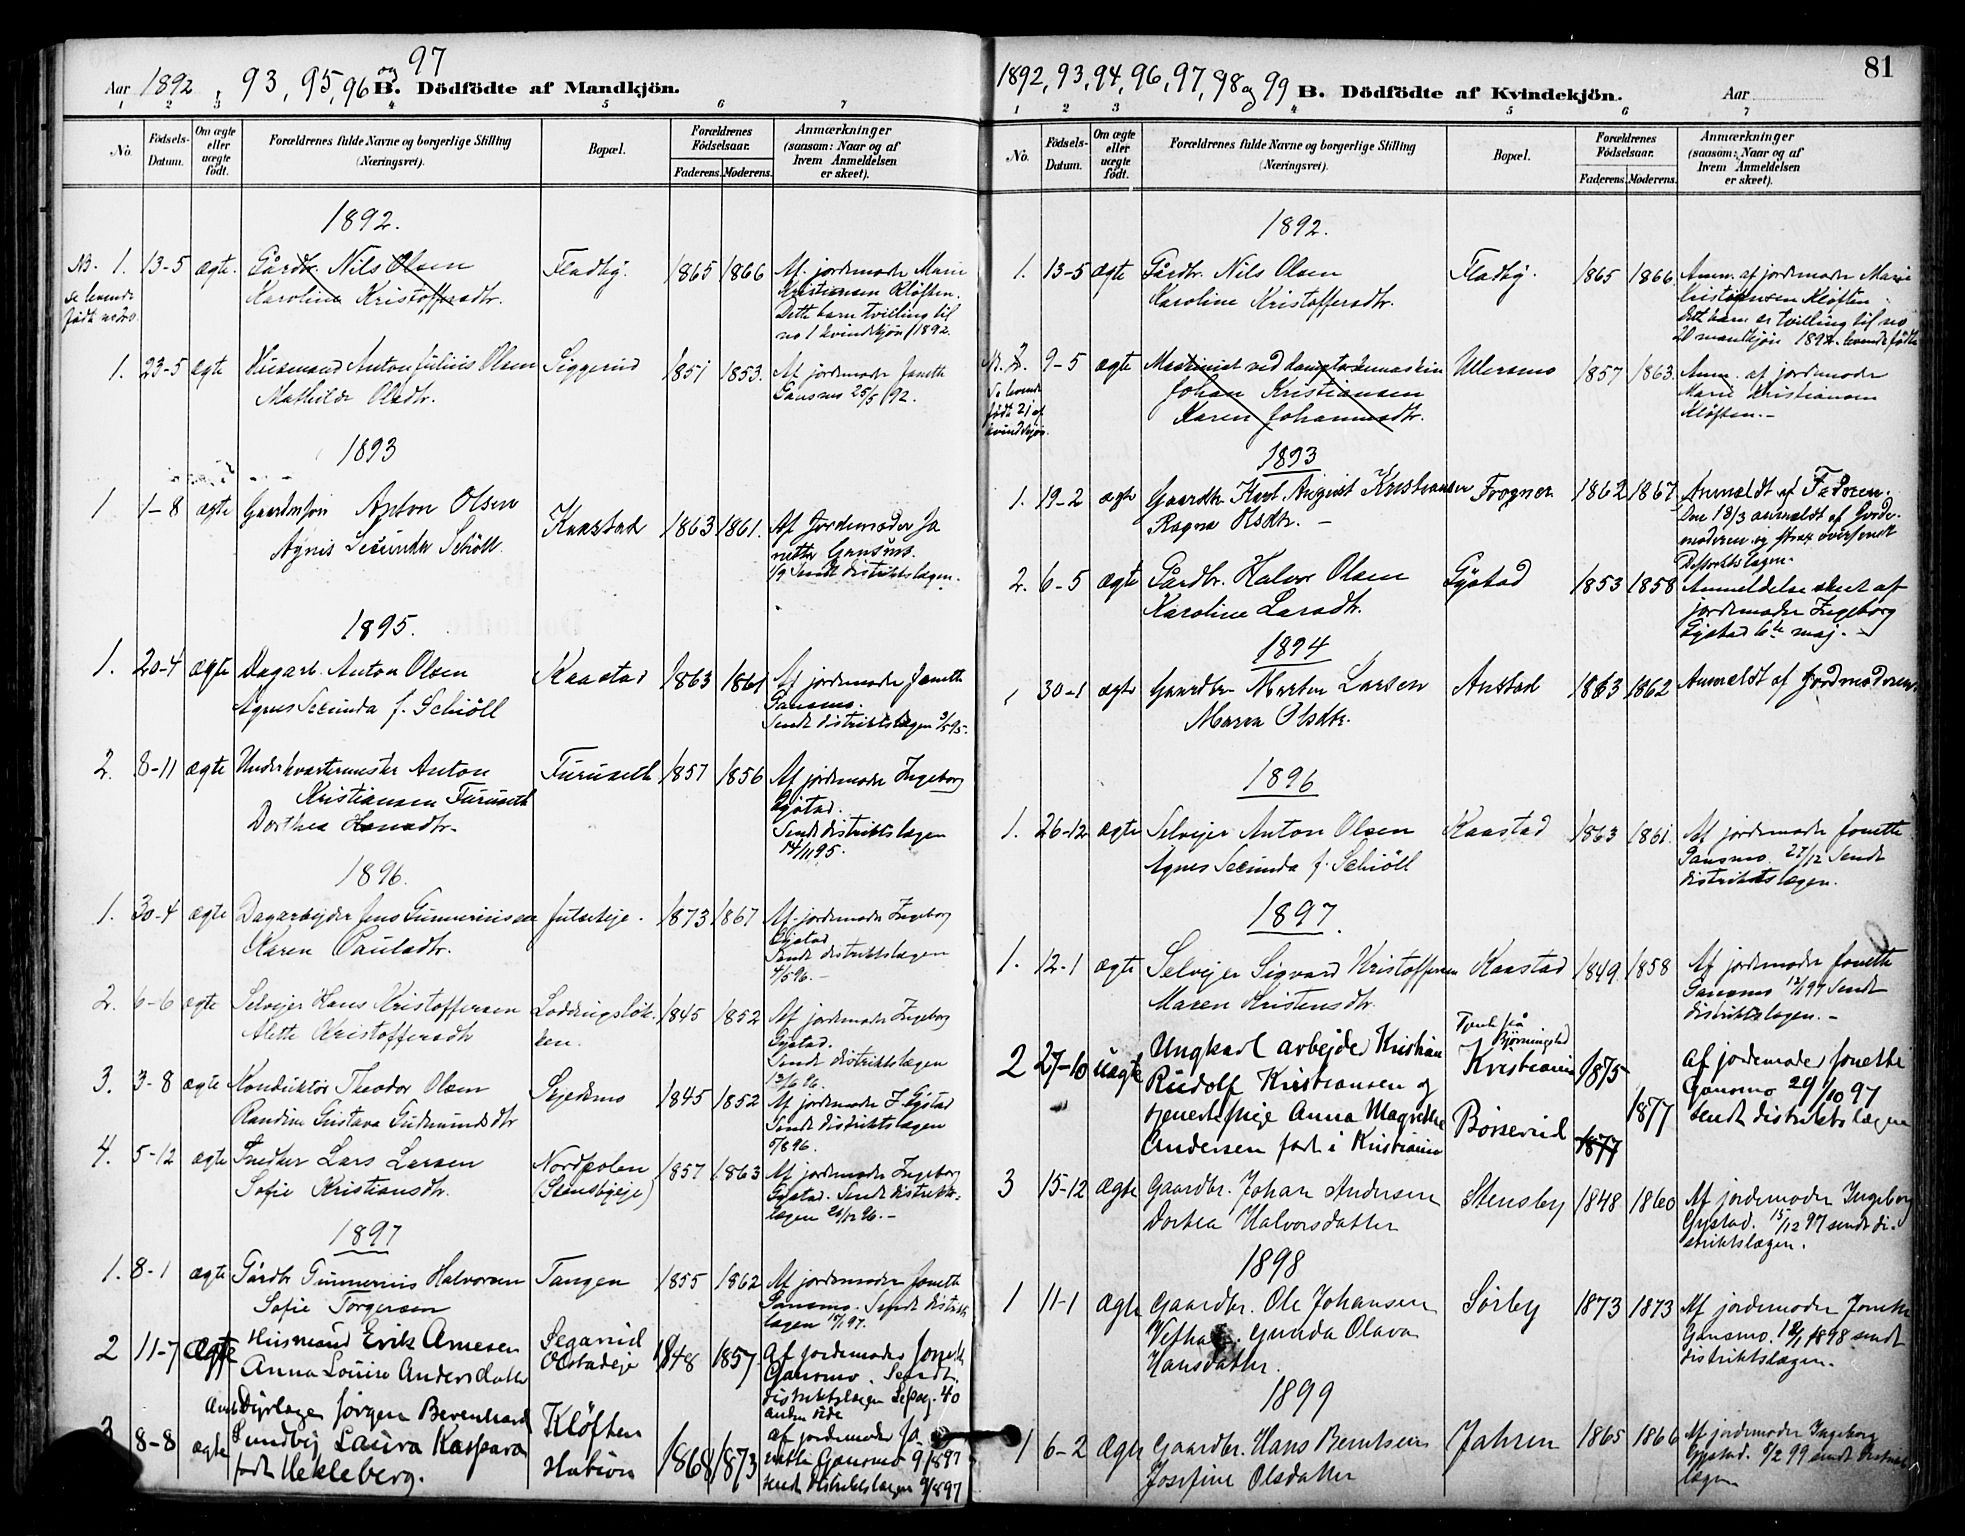 Aar 1892, 93, 95, 96 og 97 B. Dödfödte af Mandkjön.
1 2 3 4 5 6 7
No.
Födsels-
Datum.
Om ægte
eller
uægte
födt.
Forældrenes fulde Navne og borgerlige Stilling
(Næringsvei).
Bopæl.
Forældrenes
Födselsaar.
Faderens. Moderens.
Anmærkninger
(saasom: Naar og af
hvem Anmeldelsen
er skeet).
1892.
NB. 1. 13-5 ægte. Gårdbr. Nils Olsen Fladby. 1865 1866 Af jordemoder Marie
se levende Karoline Kristoffersdtr. Kristiansen Kløften.
født Dette barn tvilling til
no 1 kvindekjøn 1892.
1. 23-5 ægte Husmand Anton Julius Olsen Siggerud 1851 1853. Af jordemoder Jonette
Mathilde Olsdtr. Gansmo 25/5 92.
1893
1 1-8 ægte Anton Olsen Kaastad 1863 1861. Af Jordemoder Jo
Agnis Secunda Schöll. nette Gansmo.
1/9 Sendt distriktslægen.
1895.
1. 20-4 ægte Dagarb. Anton Olsen Kaastad 1863 1861 Af jordemoder Jonette
Agnes Secunda f. Schiöll Gansmo.
Sendt distriktslægen 95.
2. 8-11 ægte Underkvartermester Anton Furuseth 1857 1856 Af jordemoder Ingeborg
Kristiansen Furuseth Gystad.
Dorthea Hansdtr. Sendt distriktslægen
14/11 95.
1896.
1. 30-4 ægte Dagarbejder Jens Gunneriussen 1873 1867 Af jordemoder Ingeborg
Karen Paulsdtr. Gystad
Sendt distriktslægen
4/5 96.-
2. 6-6 ægte Selvejer Hans Kristoffersen Loddingsløk- 1845 1852 Af jordemoder Ingeborg
Alette Kristoffersdtr ken. Gystad.
Sendt distriktslægen
13/6 96.
3. 3-8 ægte Konduktör Theodor Olsen Sejedsmo 1845 1852 Af jordemoder I. Gystad
Randine Gustava Gudmundsdtr Sendt distriktslægen
5/8 96.
4. 5-12 ægte Snedker Lars Larsen Nordpolen 1857 1863 Af jordemoder Ingeborg
Sofie Kristiansdtr. (Stensbyeje) Gystad. Sendt distrikts-
lægen 96.-
1897
1. 8-1 ægte Gårdbr Gunnerius Halvorsen Tangen 1855 1862 Af jordemoder Jonette
Sofie Torgersen Gansmo. Sendt distrikts
lægen 97.
2 11-7 ægte Husmand Erik Arnesen 1848 1857 Af jordemoder Jonette
Anna Louise Andersdatter Olstadeje Gansmo. Sendt
distriktslægen Se pag. 40
anden side
3 8-8 ægte Amtsdyrlæge Jørgen Berenhard Kløften 1868 1873 af jordemoder Jo-
Sundbye Laura Kaspara station nette Gansmo 9/8 97
født Hekleberg. sendt distriktslægen 9/8 97
81
1892, 93, 94, 96, 97, 98 og 99 B. Dödfödte af Kvindekjön. Aar
1 2 3 4 5 6 7
No.
Födsels-
Datum.
Om ægte
eller
uægte
födt.
Forældrenes fulde Navne og borgerlige Stilling
(Næringsvei).
Bopæl.
Forældrenes
Födselsaar.
Faderens. Moderens.
Anmærkninger
(saasom: Naar og af
hvem Anmeldelsen
er skeet).
1892.
1. 13-5 ægte Gårdbr. Nils Olsen Fladby. 1865 1866 Anm. af jordemoder Marie
Karoline Kristoffersdtr. Kristiansen Kløften.
Dette barn er tvilling til no
20 mandkjøn 1892. levende fødte
NB. 2. 9-5 ægte Maskinist ved damptærskemaskin Ullersmo 1857 1863. Anm. af jordemoder
Se levende Johan Kristiansen Marie Kristiansen
født 21 af Karen Johannesdtr. Kløften.-
kvindekjøn.
1893
1. 19-2 ægte Gaardbr Karl August Kristiansen Frogner 1862 1867 Anmeldt af Faderen.
Ragna Olsdtr. - Den 18/3 anmeldt af Jorde-
moderen og strax oversendt
Distriktslægen.
2. 6-5 ægte Gårdbr. Halvor Olsen Gystad 1853 1858 Anmeldelse skeet af
Karoline Larsdtr. jordemoder Ingeborg
Gystad 6te maj.
1894
30-1 ægte Gaardbr Morten Larsen Anstad 1863 1862 Anmeldt af Jordmoderen
Maren Olsdtr.
1896
1. 26-12 ægte Selvejer Anton Olsen Kaastad 1863 1861. Af jordemoder Jonette
Agnes Secunda f. Schiöll Gansmo. 27/12 Sendt
distriktslægen.
1897.
1. 12-1 ægte Selvejer Sigvard Kristoffersen Kaastad 1849 1858 Af jordemoder Jonette
Maren Kristensdtr. Gansmo 12/1 97 Sendt
distriktslægen.-
2 27-10 uægte Ungkarl arbejder Kristian Kristiania 1875 af jordemoder Jonette
Rudolf Kristiansen og Gansmo 29/10 97
tjenestepige Anna Magrethe Børserud 1877 1877 sendt distriktslægen
Andersen født i Kristiania
3 15-12 ægte Gaardbr. Johan Andersen Stensby 1848 1860 Af jordemoder Ingeborg
Dortea Halvorsdatter Gystad. 15/12 97 sendt di-
striktslægen.
1898
1 11-1 ægte Gaardbr. Ole Johansen Sørby 1873 1873 Af jordemoder Jonette
Gunda Olava Gansmo. 1898 sendt
Hansdatter. distriktslægen.
1899
1 6-2 ægte Gaardbr. Hans Berntsen Jahren 1865 1866 Af jordemoder Ingeborg
Josefine Olsdatter Gystad. 9/2 99 sendt distrikts
lægen